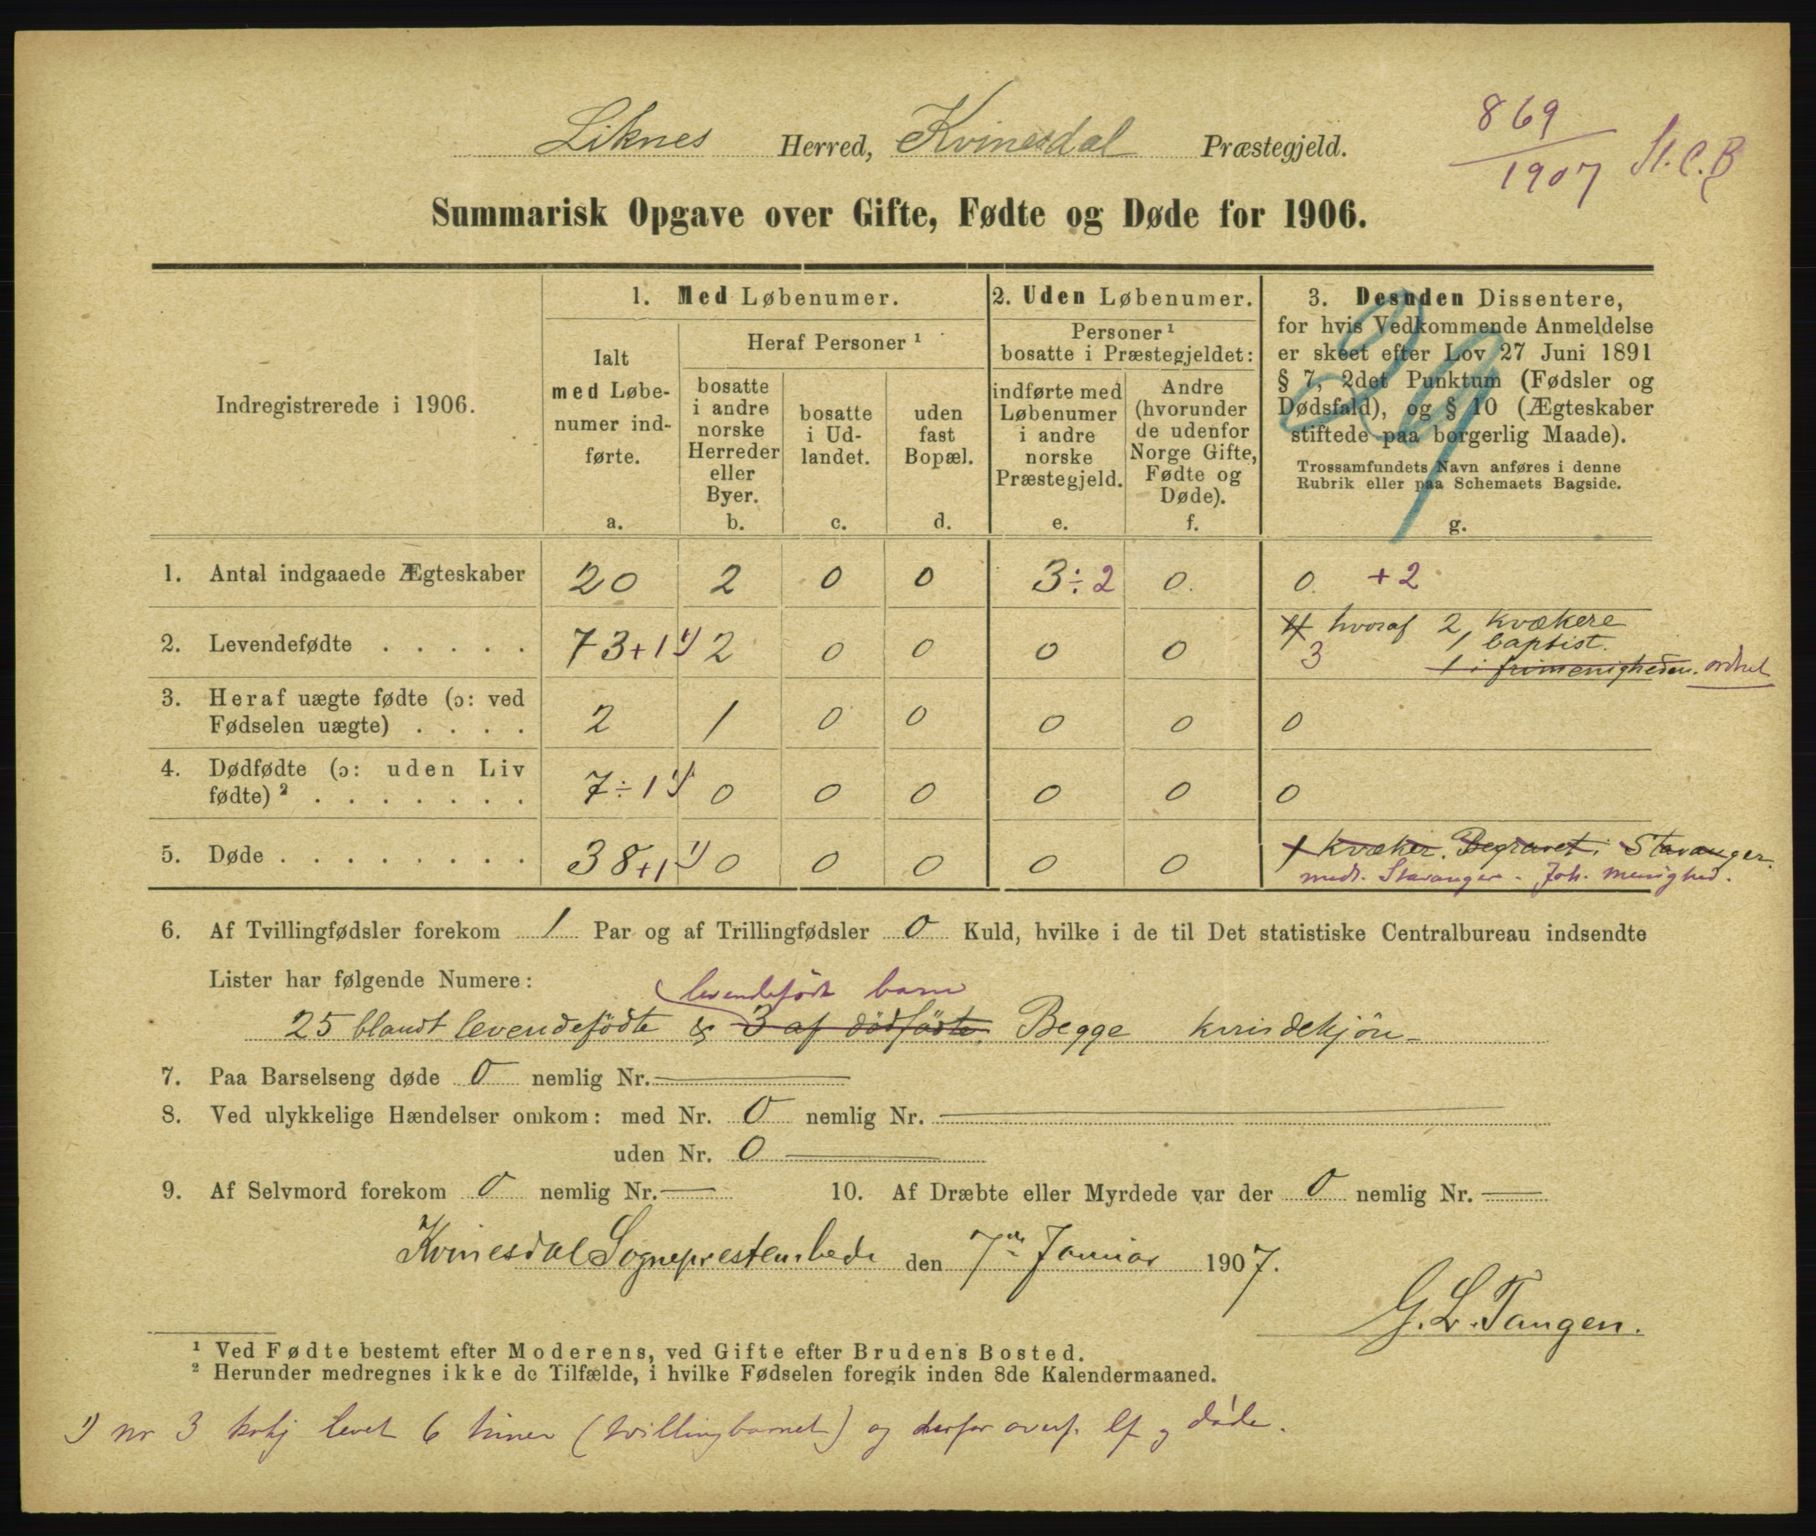 Liknes Herred, Kvinesdal Præstegjeld.
869
1907 St. C. B
Summarisk Opgave over Gifte, Fødte og Døde for 1906.
29
Indregistrerede i 1906.
1. Med Løbenumer.
Ialt
med Løbe-
numer ind-
førte.
a.
Heraf Personer ¹
bosatte
i andre
norske
Herreder
eller
Byer.
b.
bosatte
i Ud-
landet.
c.
uden
fast
Bopæl.
d.
2. Uden Løbenumer.
Personer ¹
bosatte i Præstegjeldet:
indførte med
Løbenumer
i andre
norske
Præstegjeld.
e.
Andre
(hvorunder
de udenfor
Norge Gifte,
Fødte og
Døde).
f.
3. Desuden Dissentere,
for hvis Vedkommende Anmeldelse
er skeet efter Lov 27 Juni 1891
§ 7, 2det Punktum (Fødsler og
Dødsfald), og § 10 (Ægteskaber
stiftede paa borgerlig Maade).
Trossamfundets Navn anføres i denne
Rubrik eller paa Schemaets Bagside.
g.
1. Antal indgaaede Ægteskaber 20 2 0 0 3 ÷ 2 0. 0. + 2
2. Levendefødte . . . . . 73 + 1 ¹) 2 0 0 0 0 4 hvoraf 2 kvækere
3 1 baptist.
1 i frimenigheden.
3. Heraf uægte fødte (ɔ: ved
Fødselen uægte) . . . . 2 1 0 0 0 0 0
4. Dødfødte (ɔ: uden Liv
fødte) ² . . . . . . . 7 ÷ 1 ¹) 0 0 0 0 0 0
5. Døde . . . . . . . . 38 + 1 ¹) 0 0 0 0 0 1 kvæker. Begravet i Stavanger.
medt. Stavanger - Joh. menighed.
6. Af Tvillingfødsler forekom 1 Par og af Trillingfødsler 0 Kuld, hvilke i de til Det statistiske Centralbureau indsendte
Lister har følgende Numere:
levendefødt barn
25 blandt levendefödte & 3 af dödfödte. Begge kvindekjön -
7. Paa Barselseng døde 0 nemlig Nr.
8. Ved ulykkelige Hændelser omkom: med Nr. 0 nemlig Nr.
uden Nr. 0
9. Af Selvmord forekom 0 nemlig Nr. 10. Af Dræbte eller Myrdede var der 0 nemlig Nr.
Kvinesdal Sogneprestembede den 7de Januar 1907.
G. L. Tangen.
¹ Ved Fødte bestemt efter Moderens, ved Gifte efter Brudens Bosted.
² Herunder medregnes ikke de Tilfælde, i hvilke Fødselen foregik inden 8de Kalendermaaned.
¹) nr 3 kvkj levet 6 timer (tvillingbarnet) og derfor overf. lf og døde.